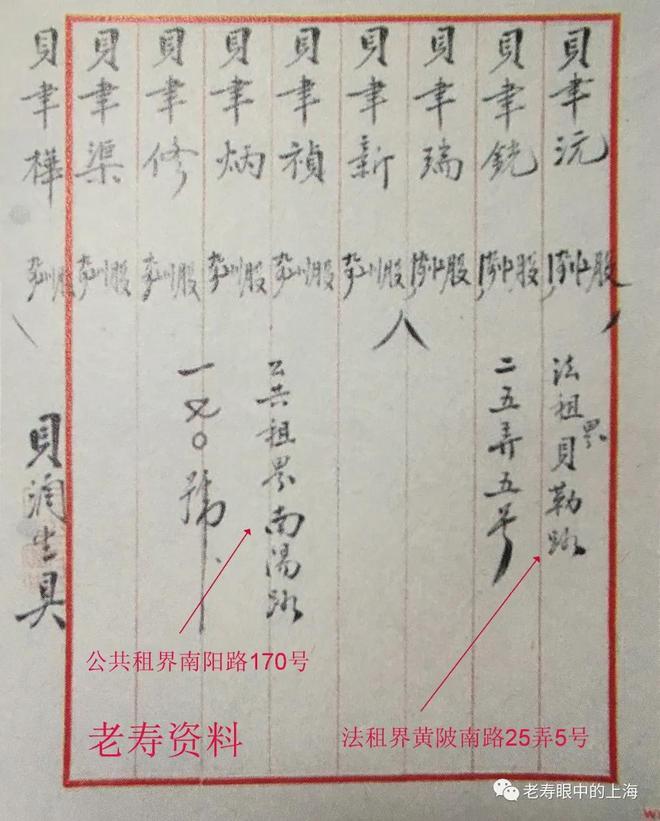 貝聿沅 股
法租界貝勒路
貝聿銑 股
二五弄五号
貝聿瑞 股
貝聿新 股
貝聿禎 股
公共租界南陽路
貝聿炳 股
一七〇號
貝聿修 股
貝聿渠 股
貝聿樺 股
貝潤生具
公共租界南阳路170号
法租界黄陂南路25弄5号
老寿资料
老寿眼中的上海